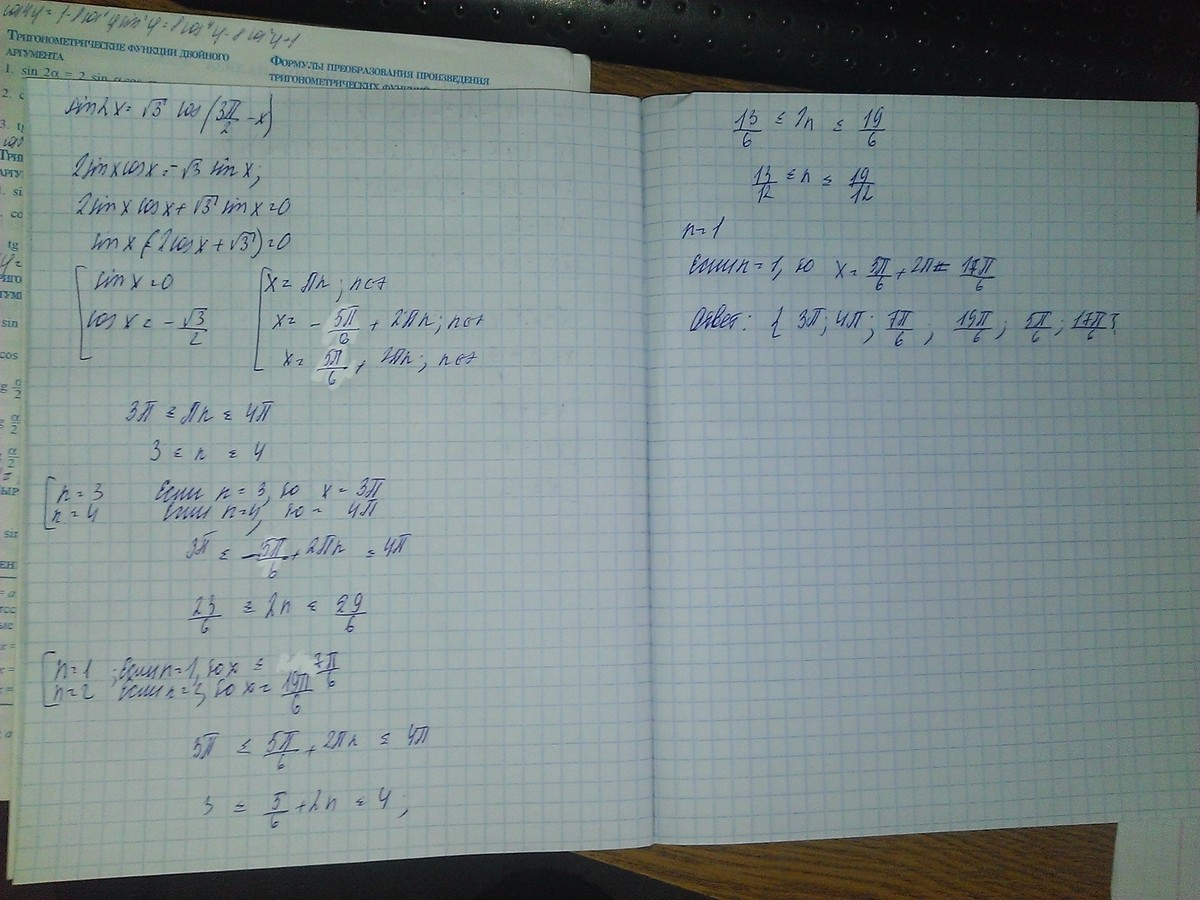 ТРИГОНОМЕТРИЧЕСКИЕ ФУНКЦИИ ДВОЙНОГО
АРГУМЕНТА
1. sin 2α = 2 sin α cos
ФОРМУЛЫ ПРЕОБРАЗОВАНИЯ ПРОИЗВЕДЕНИЯ
ТРИГОНОМЕТРИЧЕСКИХ
sin2x = √3 cos (3π/2 - x)
2sinxcosx = -√3 sinx;
2sinx cosx + √3 sinx = 0
sinx (2cosx + √3) = 0
[ sinx = 0
cosx = - √3/2
[ x = πn ; n∈z
x = - 5π/6 + 2πn ; n∈z
x = 5π/6 + 2πn ; n∈z
3π ≤ πn ≤ 4π
3 ≤ n ≤ 4
[ n = 3 Если n = 3, то x = 3π
n = 4 Если n = 4, то = 4π
3π ≤ - 5π/6 + 2πn ≤ 4π
23/6 ≤ 2n ≤ 29/6
[ n = 1 ; Если n = 1, то x = 7π/6
n = 2 Если n = 2, то x = 19π/6
3π ≤ 5π/6 + 2πn ≤ 4π
3 ≤ 5/6 + 2n ≤ 4 ;
13/6 ≤ 2n ≤ 19/6
13/12 ≤ n ≤ 19/12
n = 1
Если n = 1, то x = 5π/6 + 2π = 17π/6
Ответ: { 3π; 4π; 7π/6 ; 19π/6 ; 5π/6 ; 17π/6 }